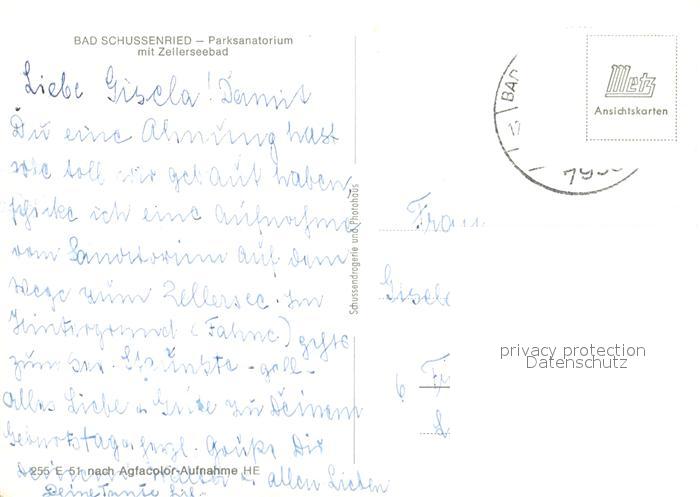 BAD SCHUSSENRIED – Parksanatorium
mit Zellerseebad
Liebe Gisela! Damit
Du eine Ahnung hast
wie toll wir gebaut haben,
schicke ich eine Aufnahme
vom Sanatorium auf dem
Wege zum Zellersee. Im
Hintergrund (Fahne) gehts
zum See.
Alles Liebe u. Gute zu Deinem
Geburtstage herzl. Grüße Dir
u. allen Lieben
Deine Tante
255 E 51 nach Agfacolor-Aufnahme HE
Schussendrogerie und Photohaus
BAD
79
Metz
Ansichtskarten
Frau
Gisela
6
privacy protection
Datenschutz